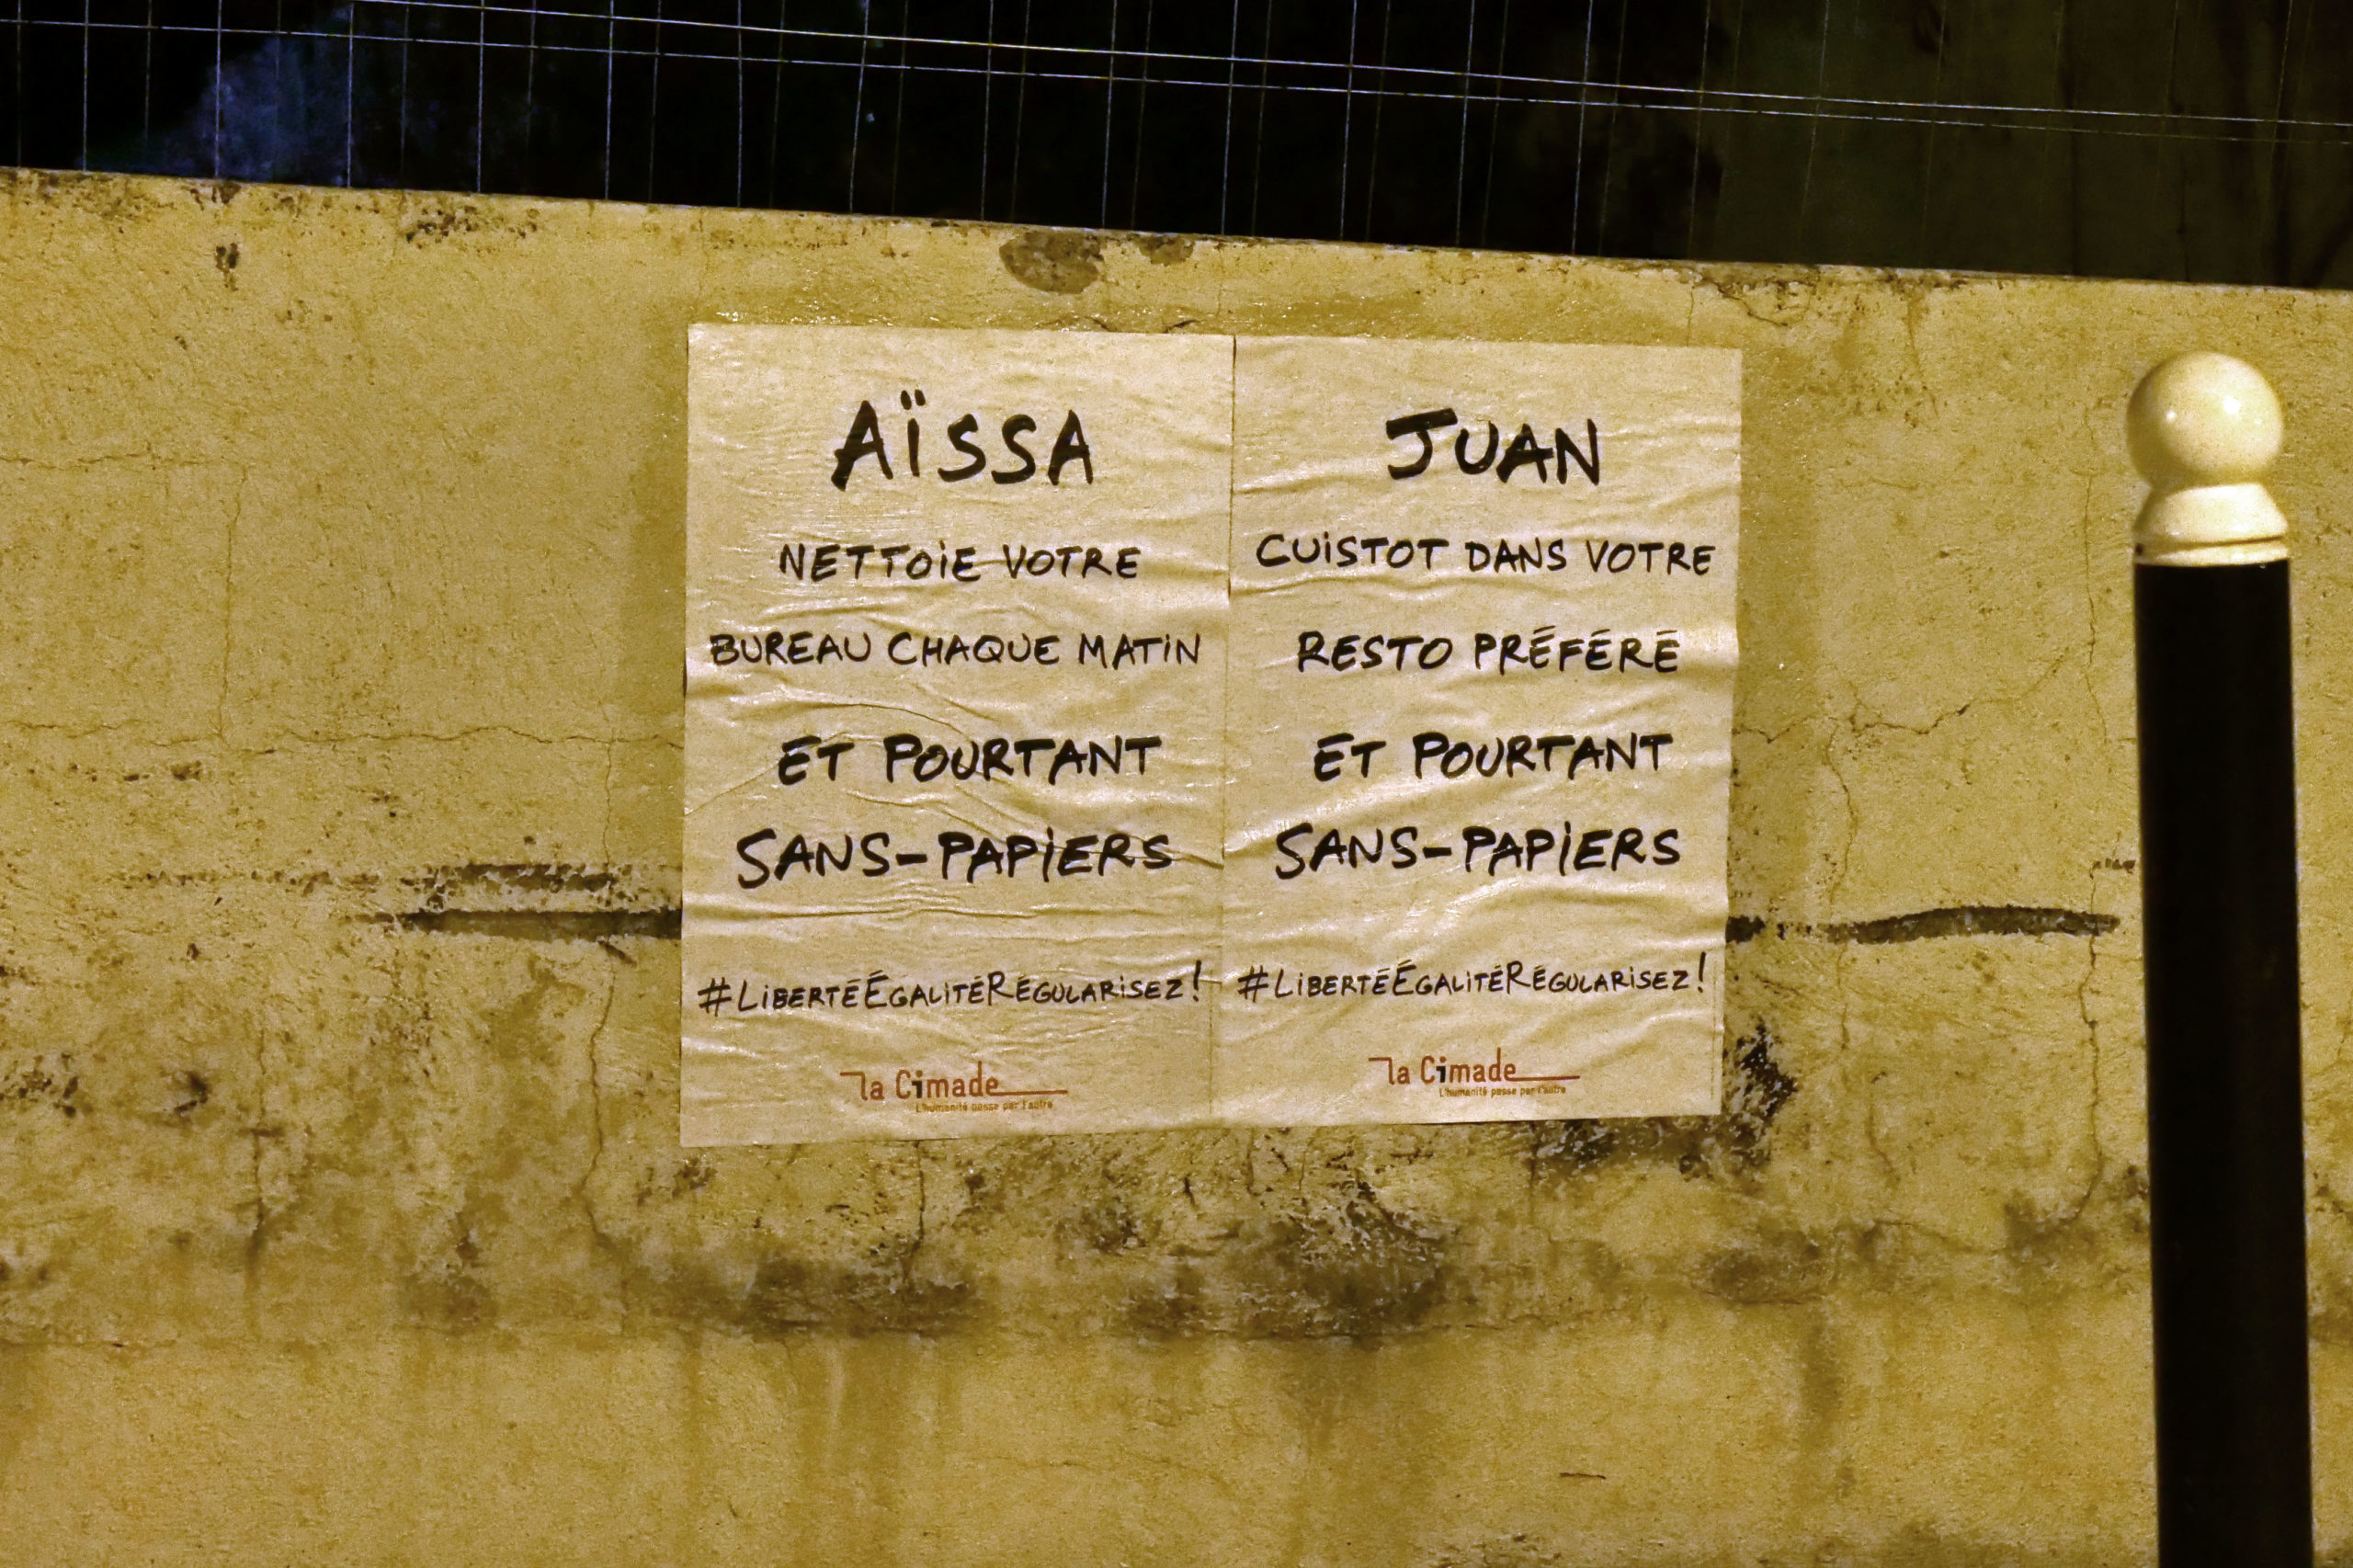 AÏSSA
NETTOIE VOTRE
BUREAU CHAQUE MATIN
ET POURTANT
SANS-PAPIERS
#LIBERTÉÉGALITÉRÉGULARISEZ!
la Cimade
L'humanité passe par l'autre
JUAN
CUISTOT DANS VOTRE
RESTO PRÉFÉRÉ
ET POURTANT
SANS-PAPIERS
#LIBERTÉÉGALITÉRÉGULARISEZ!
la Cimade
L'humanité passe par l'autre